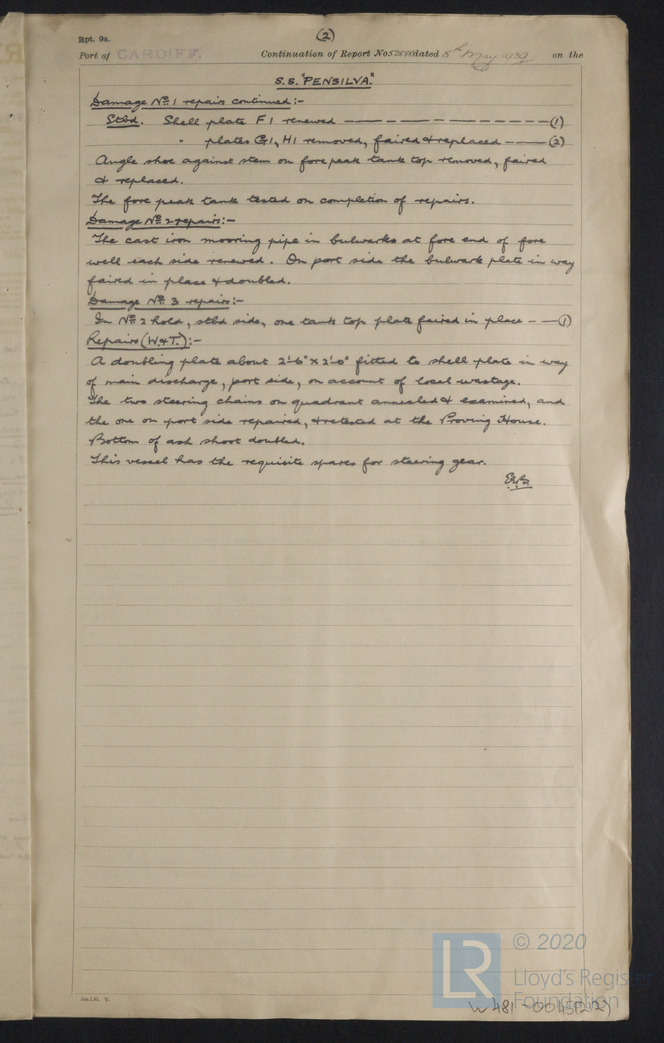 (2)
Rpt. 9a.
Port of CARDIFF. Continuation of Report No 52888 dated 5th May 1939 on the
S.S. "PENSILVA."
Damage No 1 repairs continued:-
Stbd. Shell plate F1 renewed — — — — — — — (1)
" plates G1, H1 removed, faired & replaced — — (2)
Angle shoe against stem on fore peak tank top removed, faired
& replaced.
The fore peak tank tested on completion of repairs.
Damage No 2 repairs:-
The cast iron mooring pipe in bulwarks at fore end of fore
well each side renewed. On port side the bulwark plate in way
faired in place & doubled.
Damage No 3 repairs:-
In No 2 hold, stbd side, one tank top plate faired in place - — (1)
Repairs (W.&T.):-
A doubling plate about 2'-6" x 2'-0" fitted to shell plate in way
of main discharge, port side, on account of local wastage.
The two steering chains on quadrant annealed & examined, and
the one on port side repaired, & retested at the Proving House.
Bottom of ash shoot doubled.
This vessel has the requisite spares for steering gear.
© 2020
Lloyd's Register
Foundation
W481-0045(2/2)